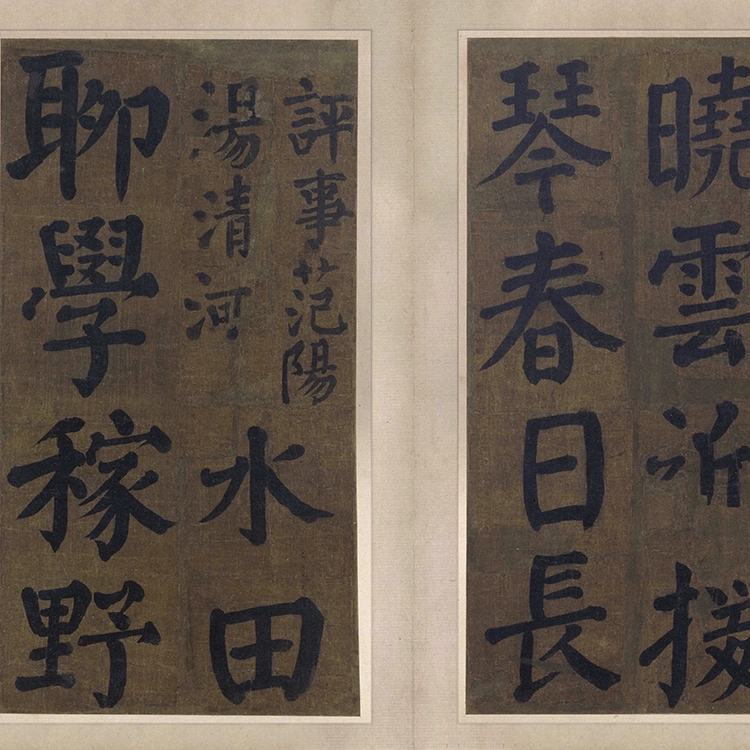 曉雲近援
琴春日長
評事范陽
湯清河
水田
聊學稼野